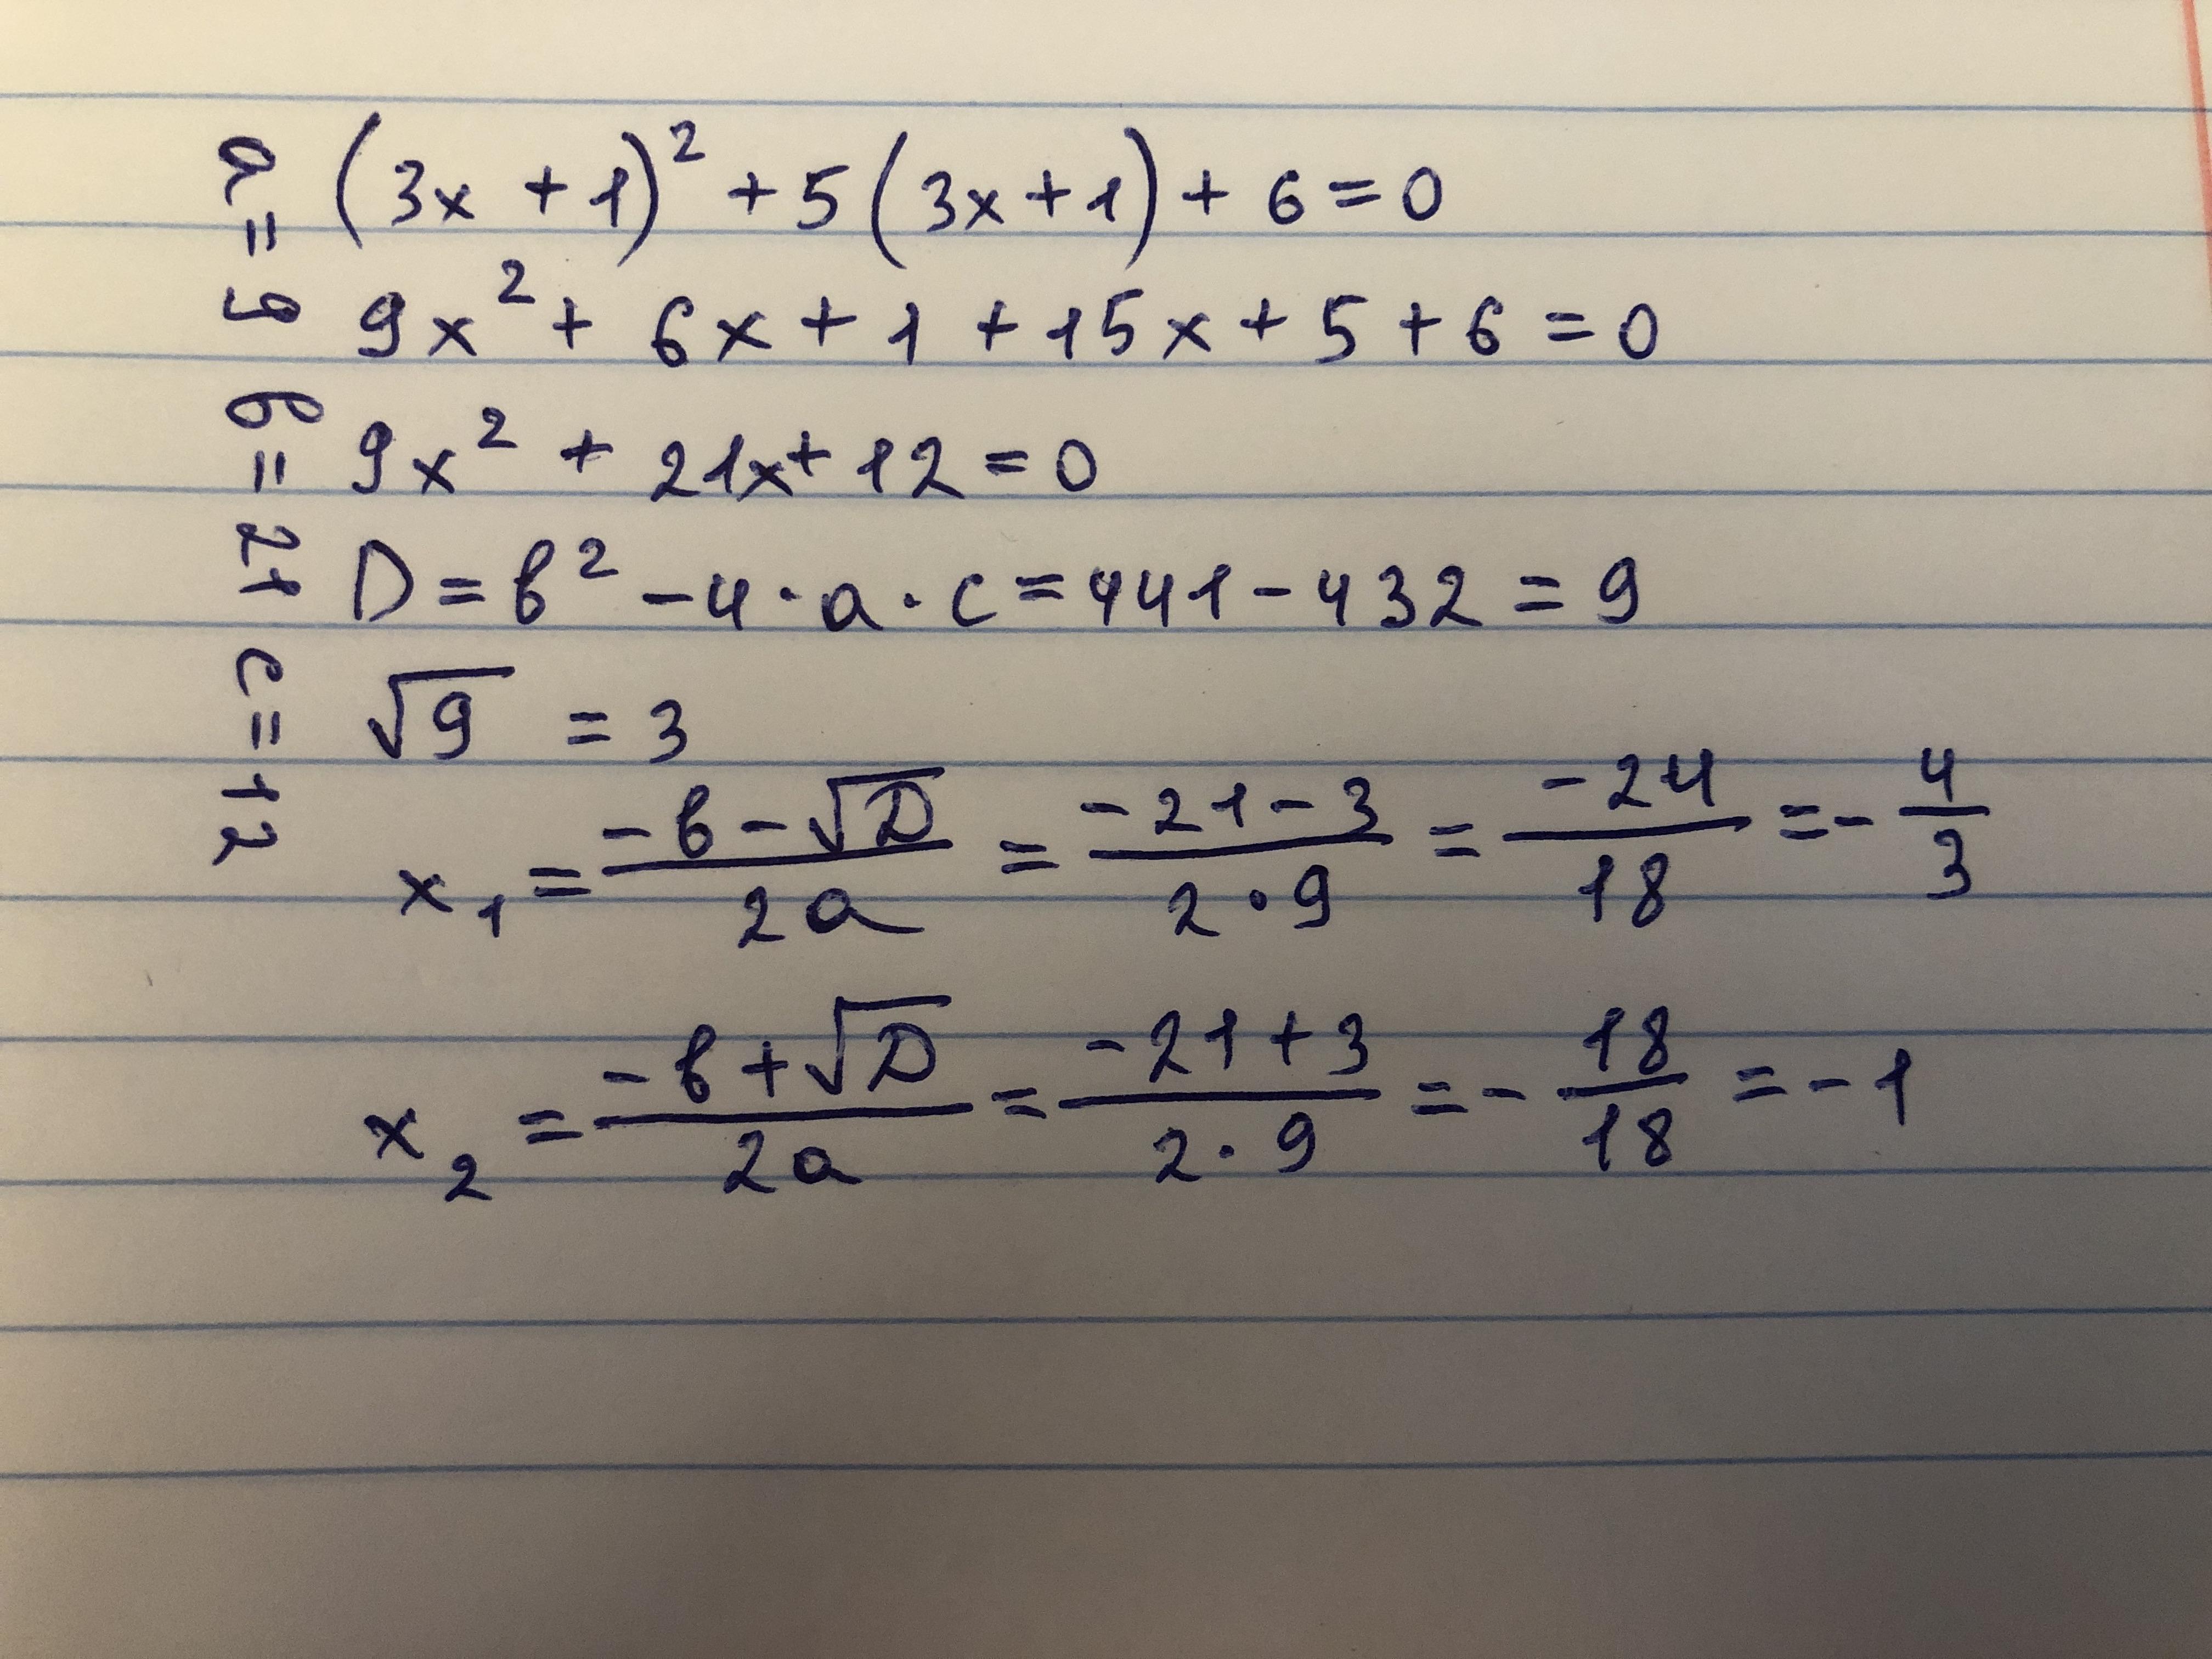 (3x + 1)² + 5(3x + 1) + 6 = 0
9x² + 6x + 1 + 15x + 5 + 6 = 0
9x² + 21x + 12 = 0
D = b² - 4 · a · c = 441 - 432 = 9
√9 = 3
x₁ = (-b - √D)/(2a) = (-21 - 3)/(2 · 9) = -24/18 = - 4/3
x₂ = (-b + √D)/(2a) = (-21 + 3)/(2 · 9) = - 18/18 = -1
a = 9 b = 21 c = 12